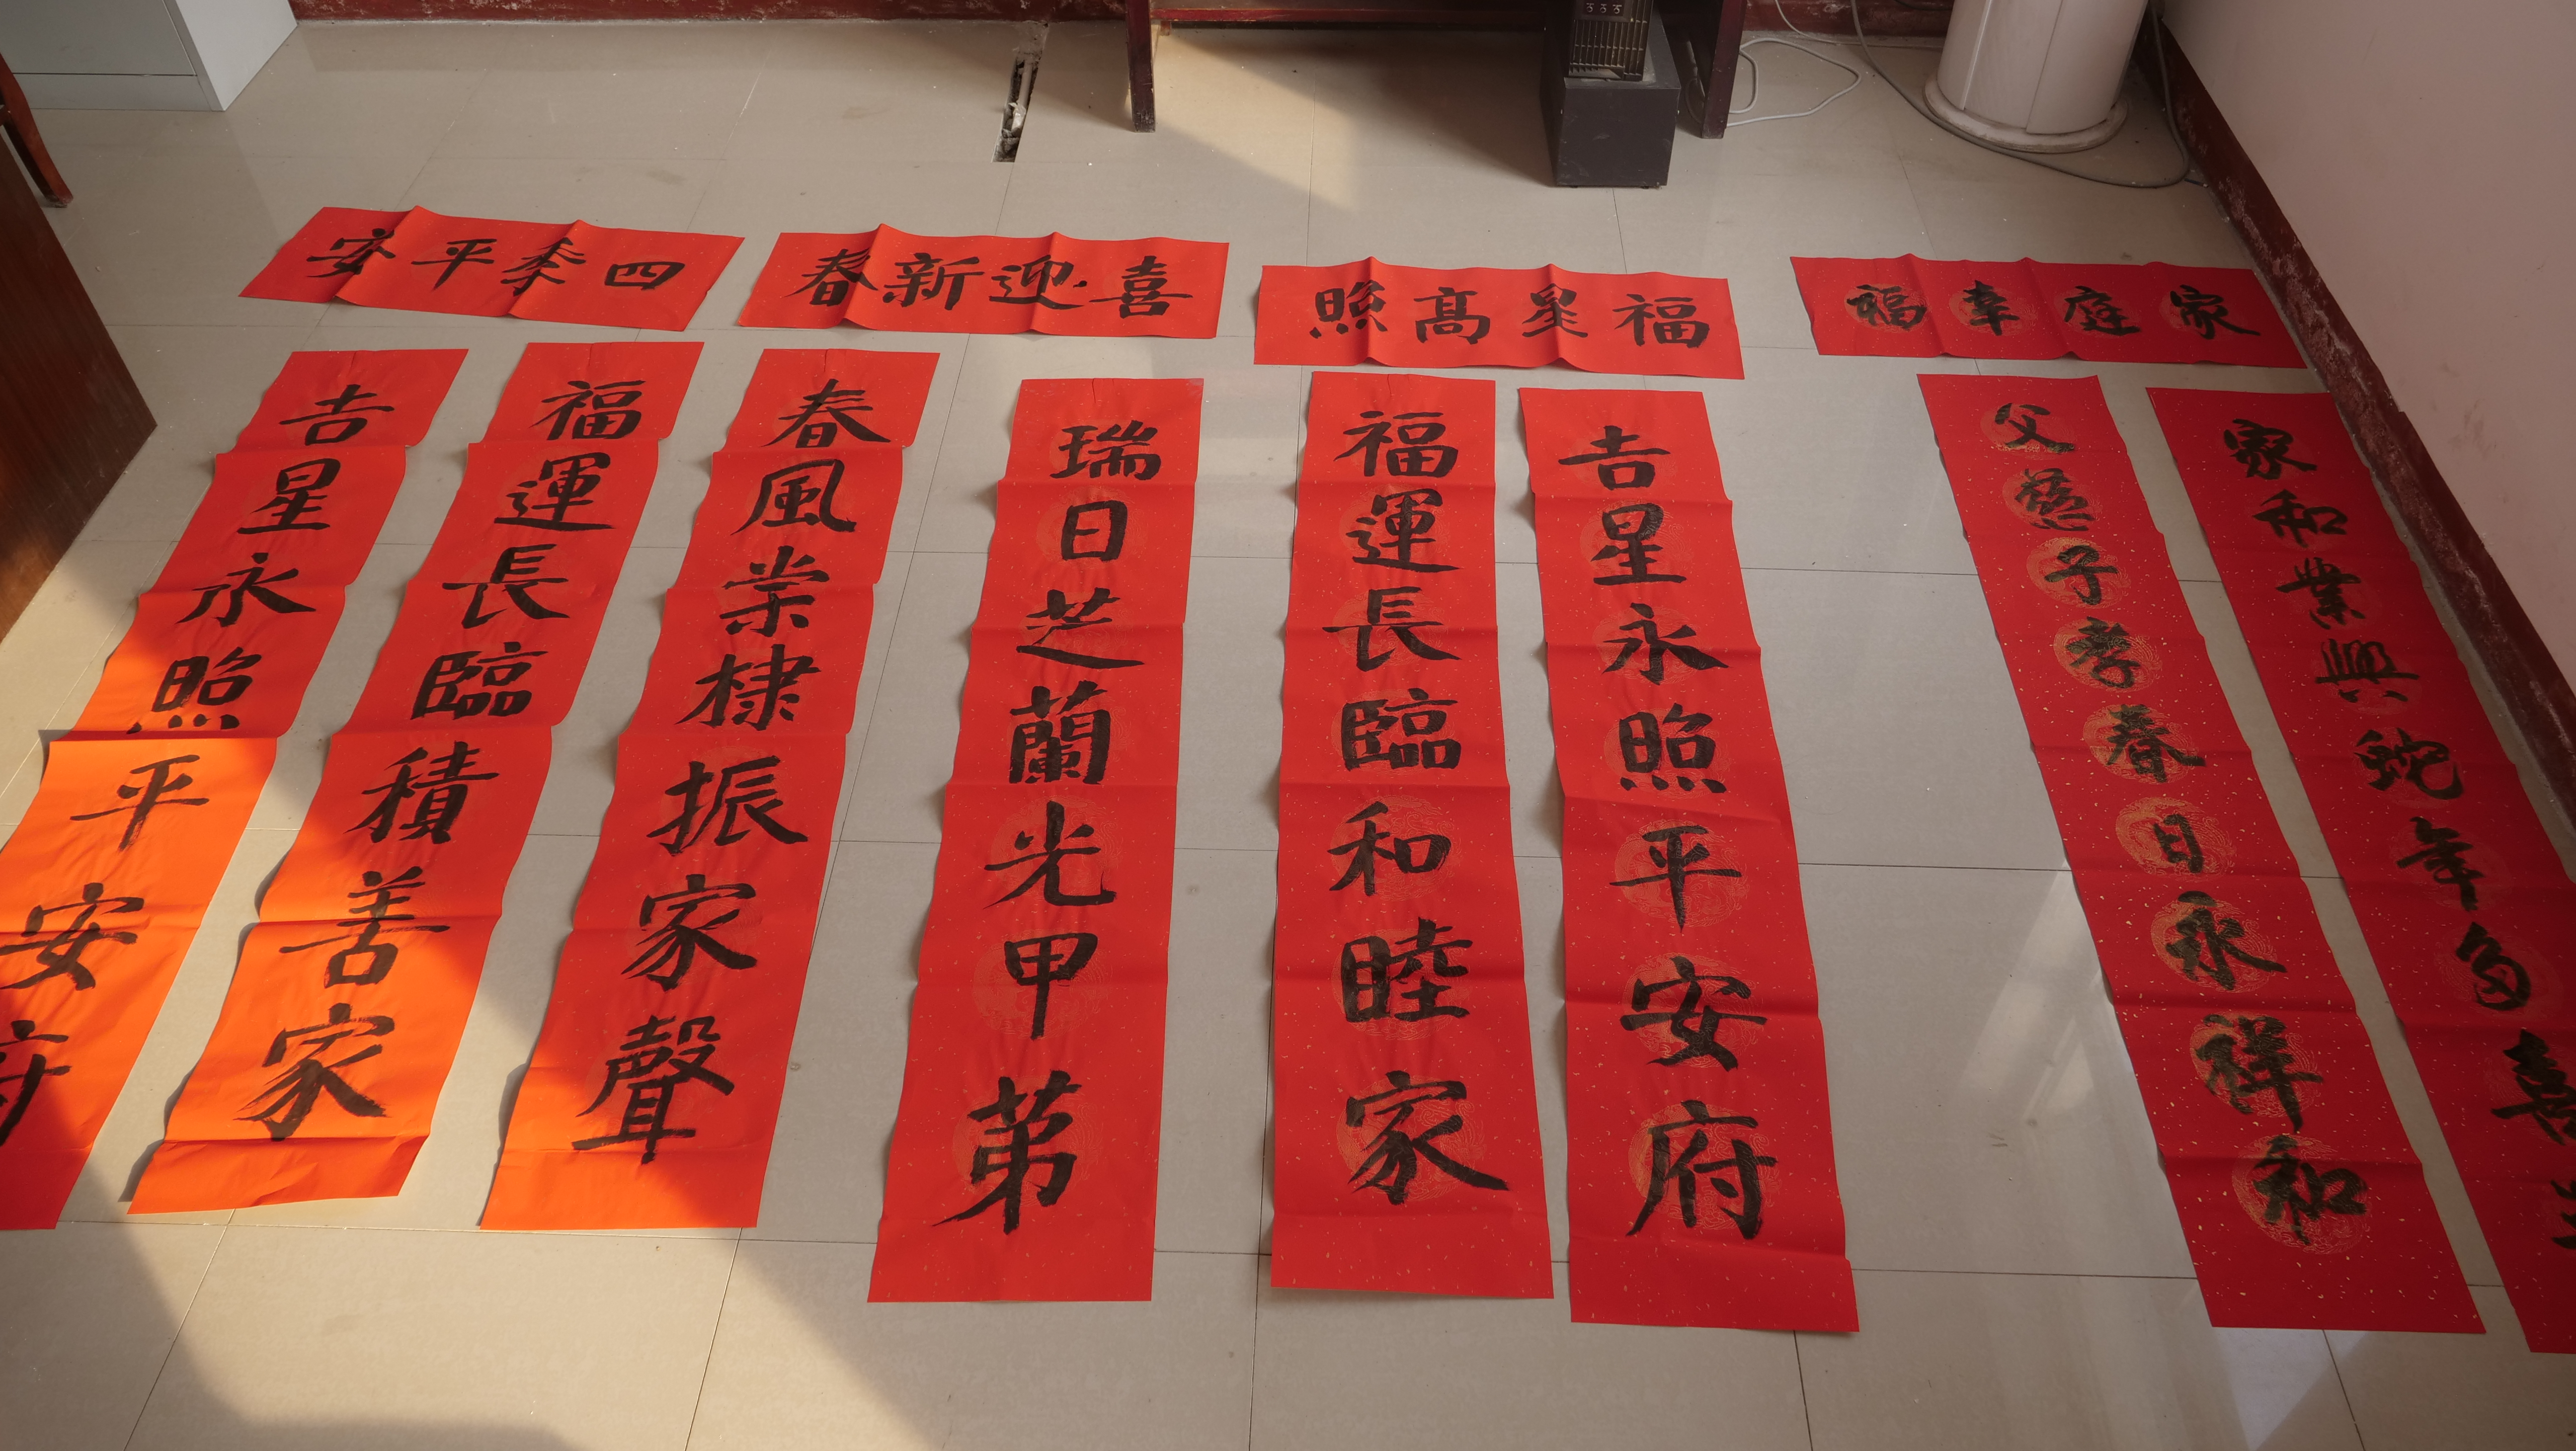 四季平安
喜迎新春
福星髙照
家庭幸福
吉星永照平安府
福運長臨積善家
春風棠棣振家聲
瑞日芝蘭光甲苐
福運長臨和睦家
吉星永照平安府
父慈子孝春日永祥和
家和業興蛇年多喜